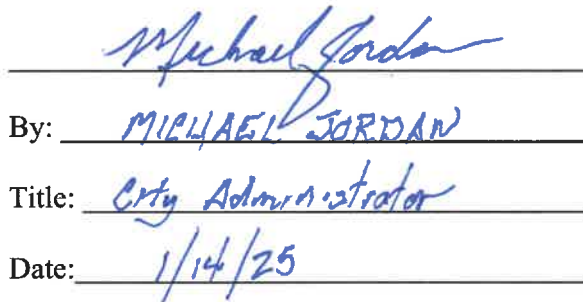 Michael Jordan
By: MICHAEL JORDAN
Title: City Administrator
Date: 1/14/25